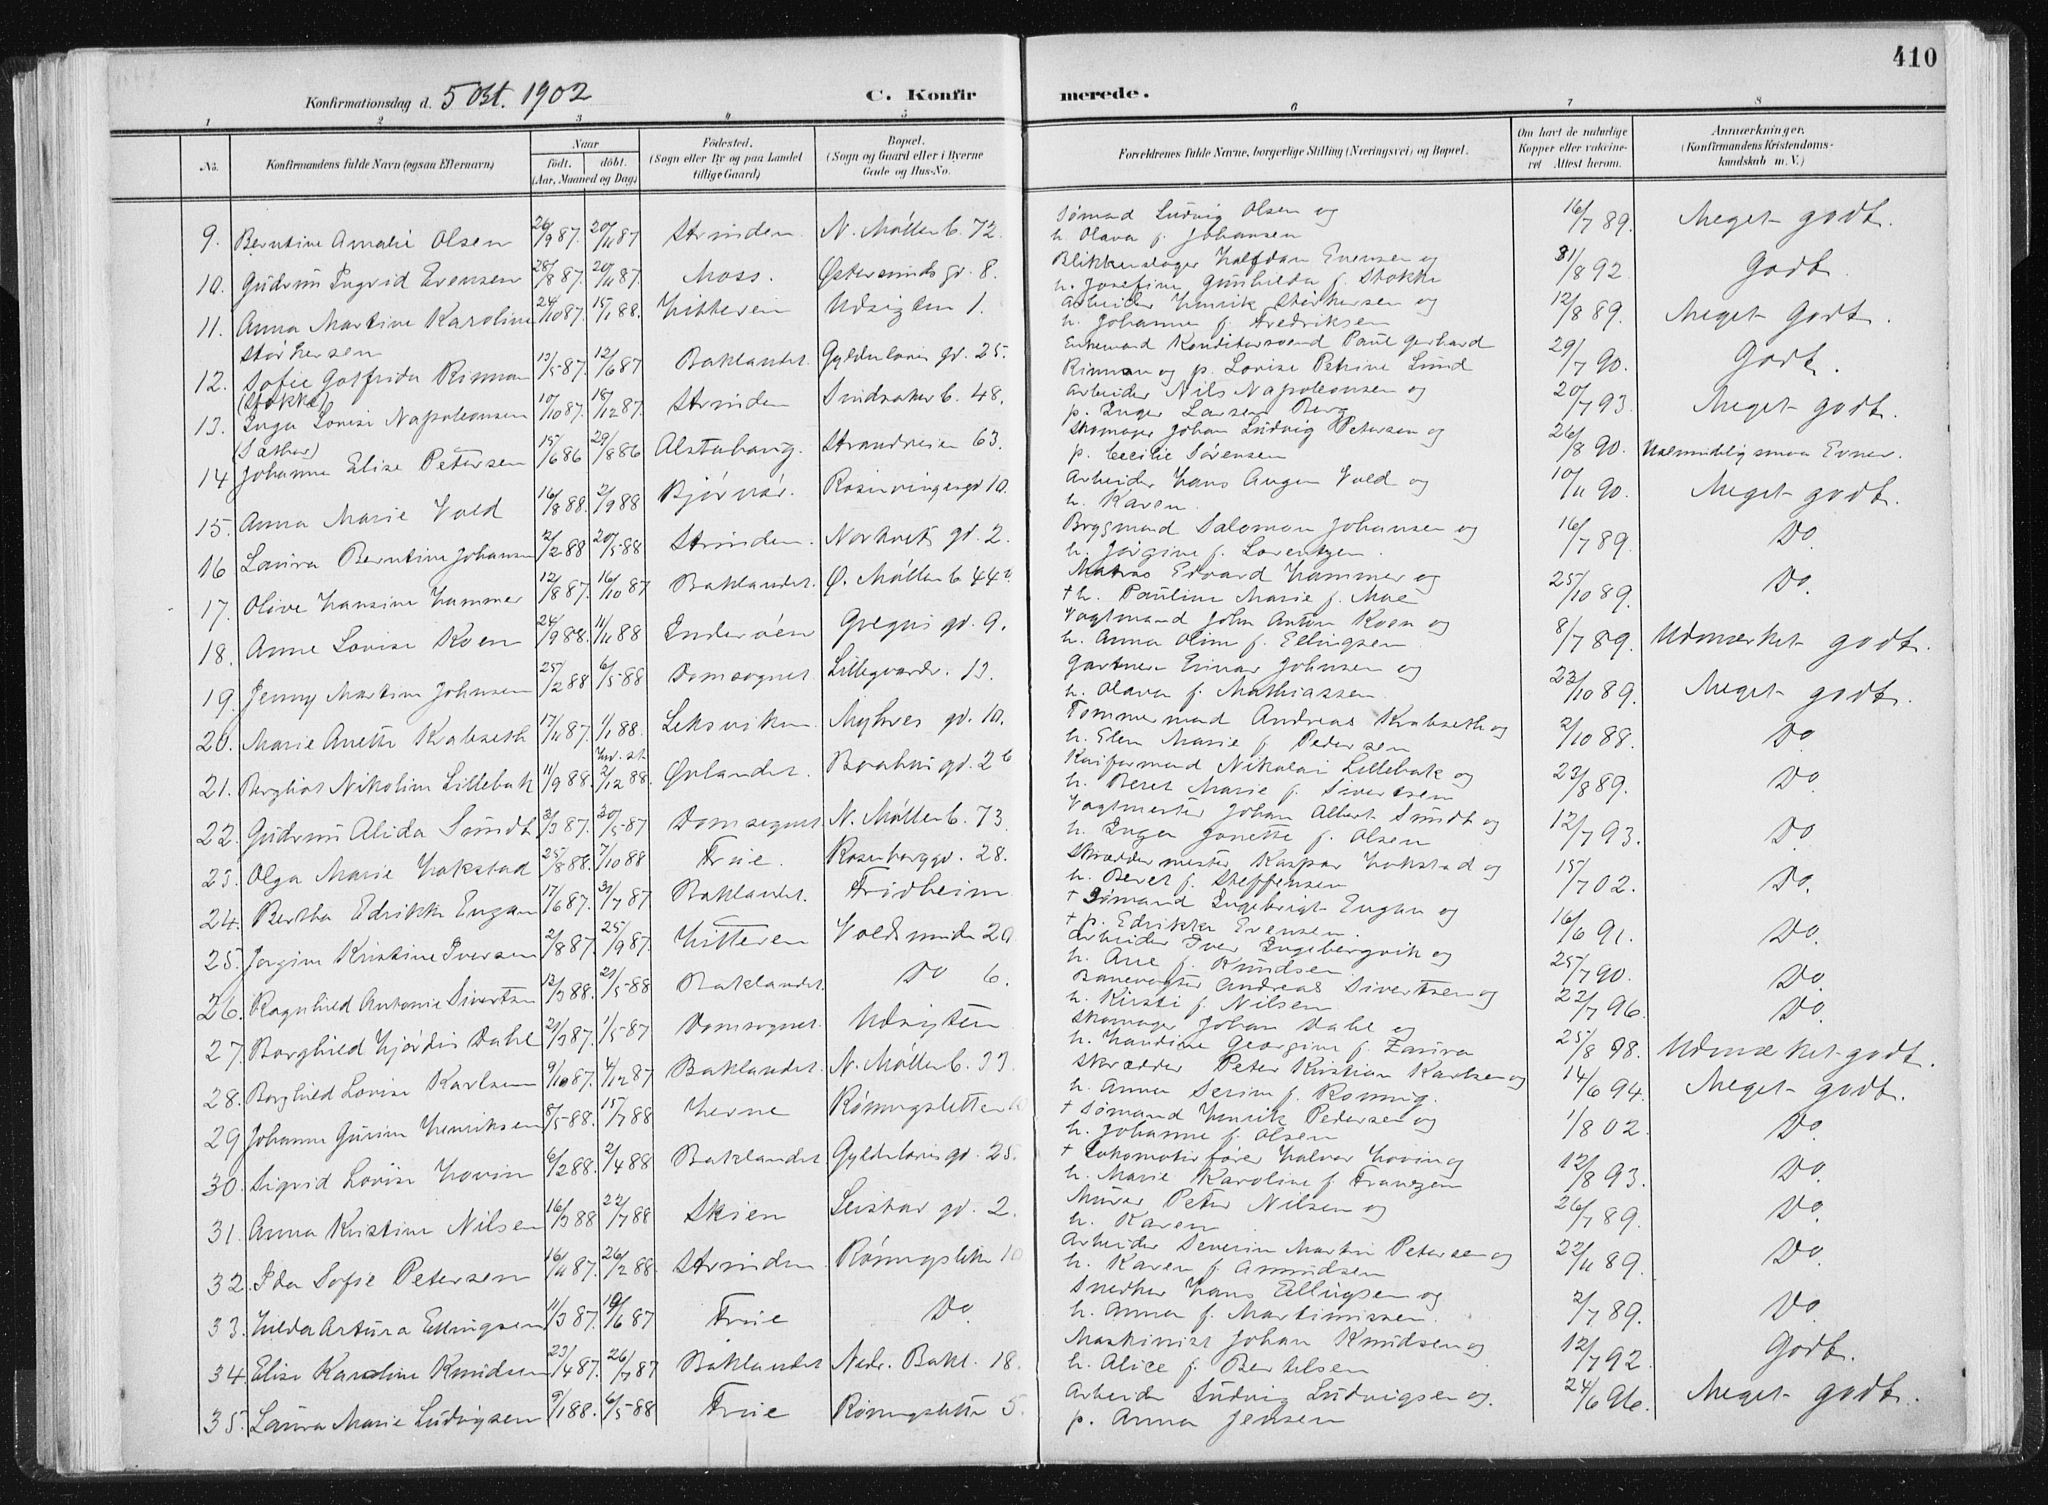 410
Konfirmationsdag d. 5 Okt. 1902 C. Konfirmerede.
1 2 3 4 5 6 7 8
No. Konfirmandens fulde Navn (ogsaa Efternavn) Naar født. døbt. (Aar, Maaned og Dag) Fødested. (Sogn eller By og paa Landet tillige Gaard) Bopæl. (Sogn og Gaard eller i Byerne Gade og Hus-No. Forældrenes fulde Navne, borgerlige Stilling (Næringsvei) og Bopæl. Om havt de naturlige Kopper eller vaccineret Attest herom. Anmærkninger. (Konfirmandens Kristendomskundskab m. V.)
9. Berntine Amalie Olsen 26/9 87. 20/11 87 Strinden N. Møllenb. 72. Sømand Ludvig Olsen og h. Olava f. Johansen 16/7 89. Meget godt.
10. Gudrun Ingrid Evensen 28/8 87. 20/11 87. Moss. Østersunds gd. 8. Blikkenslager Halfdan Evensen og h. Josefine Gunhilda f. Stokke 31/8 92. Godt
11. Anna Martine Karoline Størkersen 24/10 87. 15/1 88. Hitteren Udsigten 1. Arbeider Henrik Størkersen og h. Johanna f. Fredriksen 12/8 89. Meget Godt.
12. Sofie Gotfrida Rinnan (Stokke) 13/5 87. 12/6 87 Baklandet. Gyldenløves gd. 25. Enkemand Konditorsvend Paul Gerhard Rinnan og p. Lovise Petrine Lund 29/7 90. Godt.
13. Inga Lovise Napoleonsen (Sæther) 10/10 87. 18/12 87. Strinden Sindsakerb. 48. Arbeider Nils Napoleonsen og p. Inger Larsen Berg 20/7 93. Meget godt.
14 Johanna Elise Petersen 15/6 86 29/8 86 Alstahaug. Strandveien 63. Skomager Johan Ludvig Petersen og p. Cecilie Sørensen 26/8 90. Ualmindelig smaa Evner.
15. Anna Marie Vold 16/8 88. 2/9 88 Bjørnør. Rosenvingesgd 10. Arbeider Hans Angen Vold og h. Karen 10/11 90. Meget godt.
16 Laura Berntine Johansen 2/2 88 20/5 88 Strinden. Norkvets gd. 2. Brygmand Salomon Johansen og h. Jørgine f. Lorentzen. 16/7 89. Do
17. Olive Hansine Hammer 12/8 87. 16/10 87 Baklandet. Ø. Møllenb 44b. Matros Edvard Hammer og † h. Pauline Marie f. Moe 25/10 89. Do
18. Anne Lovise Koen 24/9 88. 11/11 88 Inderøen Gregus gd. 9. Vogtmand John Anton Koen og h. Anna Oline f. Ellingsen 8/7 89. Udmærket godt.
19. Jenny Martine Johnsen 25/2 88 6/5 88 Domsognet. Lillegaardsb. 13. Gartner Einar Johnsen og h. Olava f. Mathiassen. 23/10 89. Meget godt.
20. Marie Anette Krabseth 17/11 87. 1/1 88. Leksviken Myhres gd. 10. Tømmermand Andreas Krabseth og h. Elen Marie f. Pedersen 2/10 88. Do
21. Bergliot Nikoline Lillebak 11/9 88. 2/12 88. Ørlandet. gd. 2b Nikolai Lillebak og h. Beret Marie f. Sivertsen 23/8 89. Do
22. Gudrun Alida Sundt 31/3 87. 30/5 87 Domsognet N. Møllenb. 73. Vogtmester Johan Albert Sundt og h. Inga Janette f. Olsen 12/7 93. Do
23. Olga Marie Hokstad 25/8 88. 7/10 88 Frue. Rosenborggd. 28. Skræddermester Kaspar Hokstad og h. Beret f. Steffensen 15/7 02. Do.
24. Bertha Edrikke Engan 17/6 87. 31/7 87 Baklandet. Fridheim † Sømand Ingebrigt Engan og † p. Edrikke Evensen. 16/6 91. Do
25. Jørgine Kristine Iversen 2/8 87. 25/9 87. Hitteren Voldsminde 20 Arbeider Iver Ingebergvik og h. Ane f. Knudsen 25/7 90. Do
26. Ragnhild Antonie Sivertsen 12/3 88. 21/5 88 Baklandet. Do 6. Banevogter Andreas Sivertsen og h. Kirsti f. Nilsen 22/7 96. Do.
27. Borghild Hjørdis Dahl 21/3 87. 1/5 87 Domsognet. Udsigten Skomager Johan Dahl og h. Georgine f. 25/8 98. Udmærket godt.
28. Borghild Lovise Karlsen 9/10 87. 4/12 87 Baklandet. N. Møllenb. 33. Skrædder Peter Kristian Karlsen og h. Anna Serine f. Rønning. 14/6 94. Meget godt.
29 Johanna Gurine Henriksen 8/5 88. 15/7 88 Herne Rønningsletten 10 † Sømand Henrik Pedersen og h. Johanna f. Olsen 1/8 02. Do
30. Sigrid Lovise Hovin 6/2 88. 2/4 88 Baklandet Gyldenløves gd. 25. † Lokomotivfører Halvor Hovin og h. Marie Karoline f. Frantzen 12/8 93. Do.
31. Anna Kristine Nilsen 16/3 88 22/7 88 Skien Leistar gd. 2. Murer Peter Nilsen og h. Karen 26/7 89. Do
32. Ida Sofie Petersen 16/11 87. 26/2 88 Strinden Rønningslette 10 Arbeider Severin Martin Petersen og h. Karen f. Amundsen 22/11 89. Do
33. Hilda Artura Ellingsen 11/3 87. 19/6 87 Frue Do. Snedker Hans Ellingsen og h. Anna f. Martinussen. 2/7 89. Do
34 Elise Karoline Knudsen 23/4 87. 26/7 87 Baklandet Nedr. Bakl. 18. Maskinist Johan Knudsen og h. Alice f. Bertelsen 12/7 92. Godt.
35. Laura Marie Ludvigsen 9/1 88. 6/5 88 Frue Rønningslette 5. Arbeider Ludvig Ludvigsen og p. Anna Jensen 24/6 96. Meget godt.